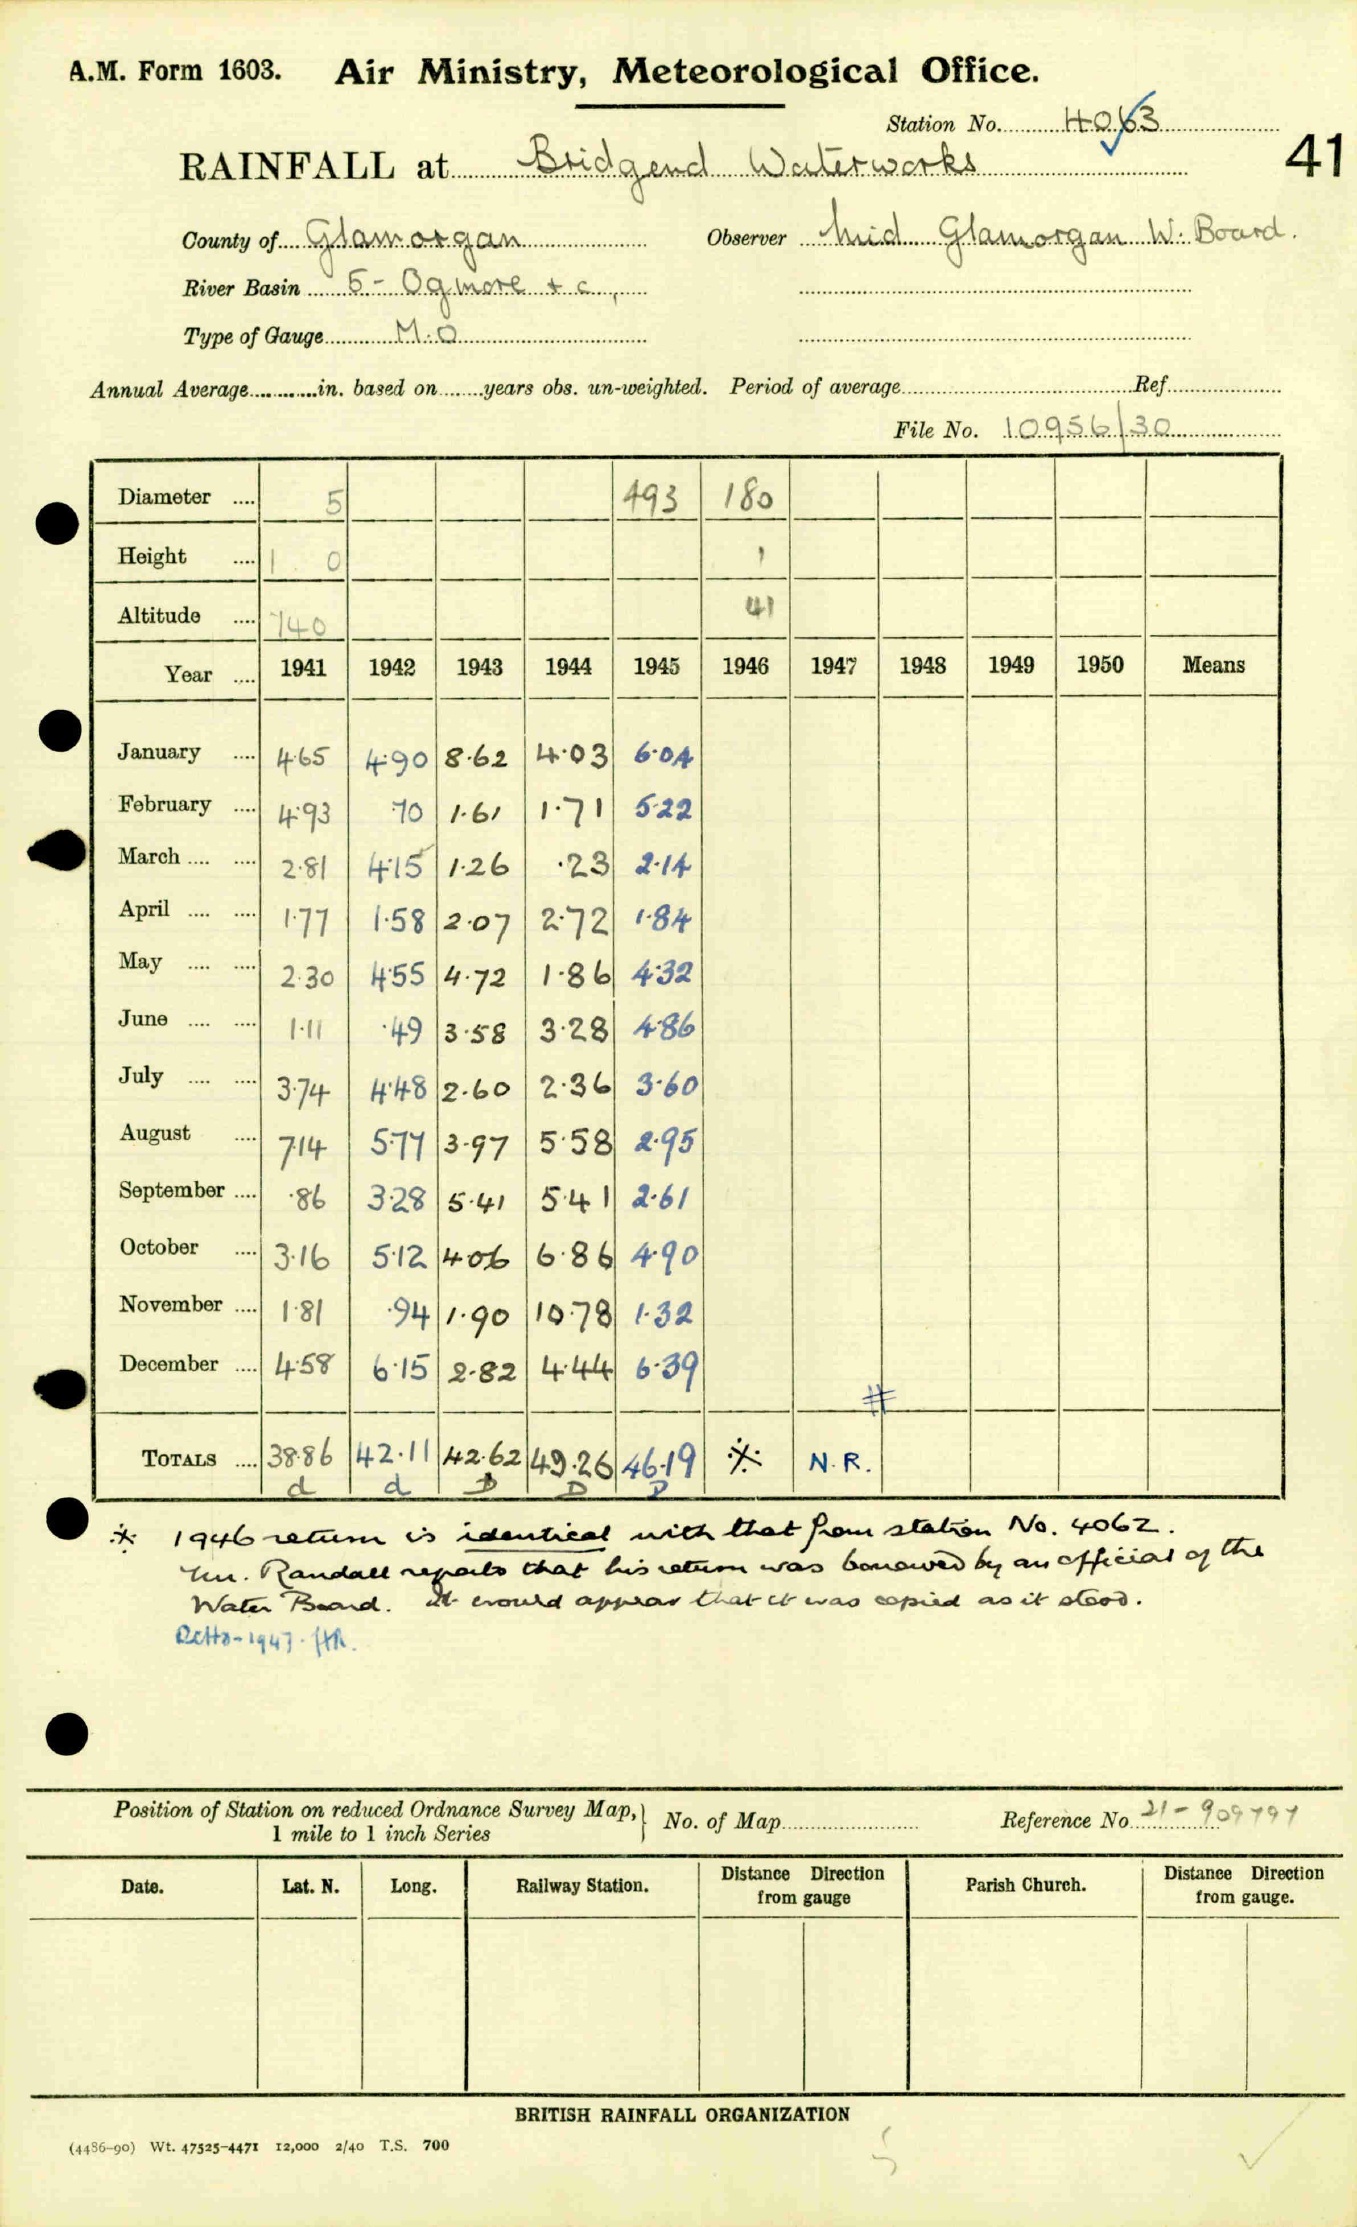 A.M. Form 1603. Air Ministry, Meteorological Office.
Station No. 4063
41
RAINFALL at Bridgend Waterworks
County of Glamorgan Observer Mid Glamorgan W. Board.
River Basin 5 - Ogmore + c,
Type of Gauge M.O
Annual Average in. based on years obs. un-weighted. Period of average Ref
File No. 10956/30
Diameter 5 493 180
Height 1 0 1
Altitude 140 41
Year 1941 1942 1943 1944 1945 1946 1947 1948 1949 1950 Means
January 4.65 4.90 8.62 4.03 6.04
February 4.93 .70 1.61 1.71 5.22
March 2.81 4.15 1.26 .23 2.14
April 1.77 1.58 2.07 2.72 1.84
May 2.30 4.55 4.72 1.86 4.32
June 1.11 .49 3.58 3.28 4.86
July 3.74 4.48 2.60 2.36 3.60
August 7.14 5.77 3.97 5.58 2.95
September .86 3.28 5.41 5.41 2.61
October 3.16 5.12 4.06 6.86 4.90
November 1.81 .94 1.90 10.78 1.32
December 4.58 6.15 2.82 4.44 6.39
#
TOTALS 38.86 42.11 42.62 49.26 46.19 ※ N.R.
d d D D D
※ 1946 return is identical with that from station No. 4062.
Mr. Randall reports that his return was borrowed by an official of the
Water Board. It would appear that it was copied as it stood.
Ditto - 1947.
Position of Station on reduced Ordnance Survey Map, 1 mile to 1 inch Series } No. of Map Reference No 21 - 909797
Date. Lat. N. Long. Railway Station. Distance Direction from gauge Parish Church. Distance Direction from gauge.
BRITISH RAINFALL ORGANIZATION
(4486-90) Wt. 47525-4471 12,000 2/40 T.S. 700